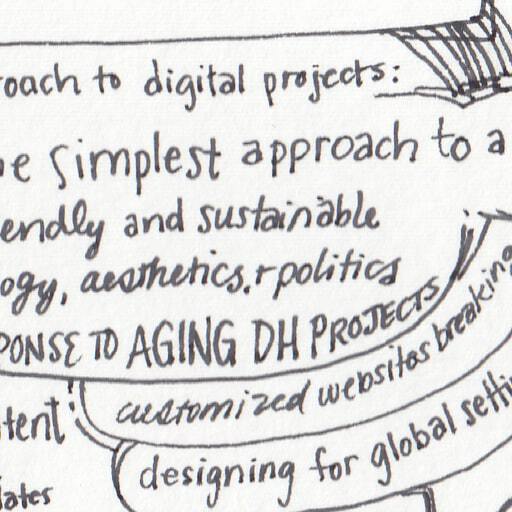 roach to digital projects:
e simplest approach to a
endly and sustainable
ogy, aesthetics, r politics
PONSE TO AGING DH PROJECTS
customized websites breaking
tent
designing for global setti
lates